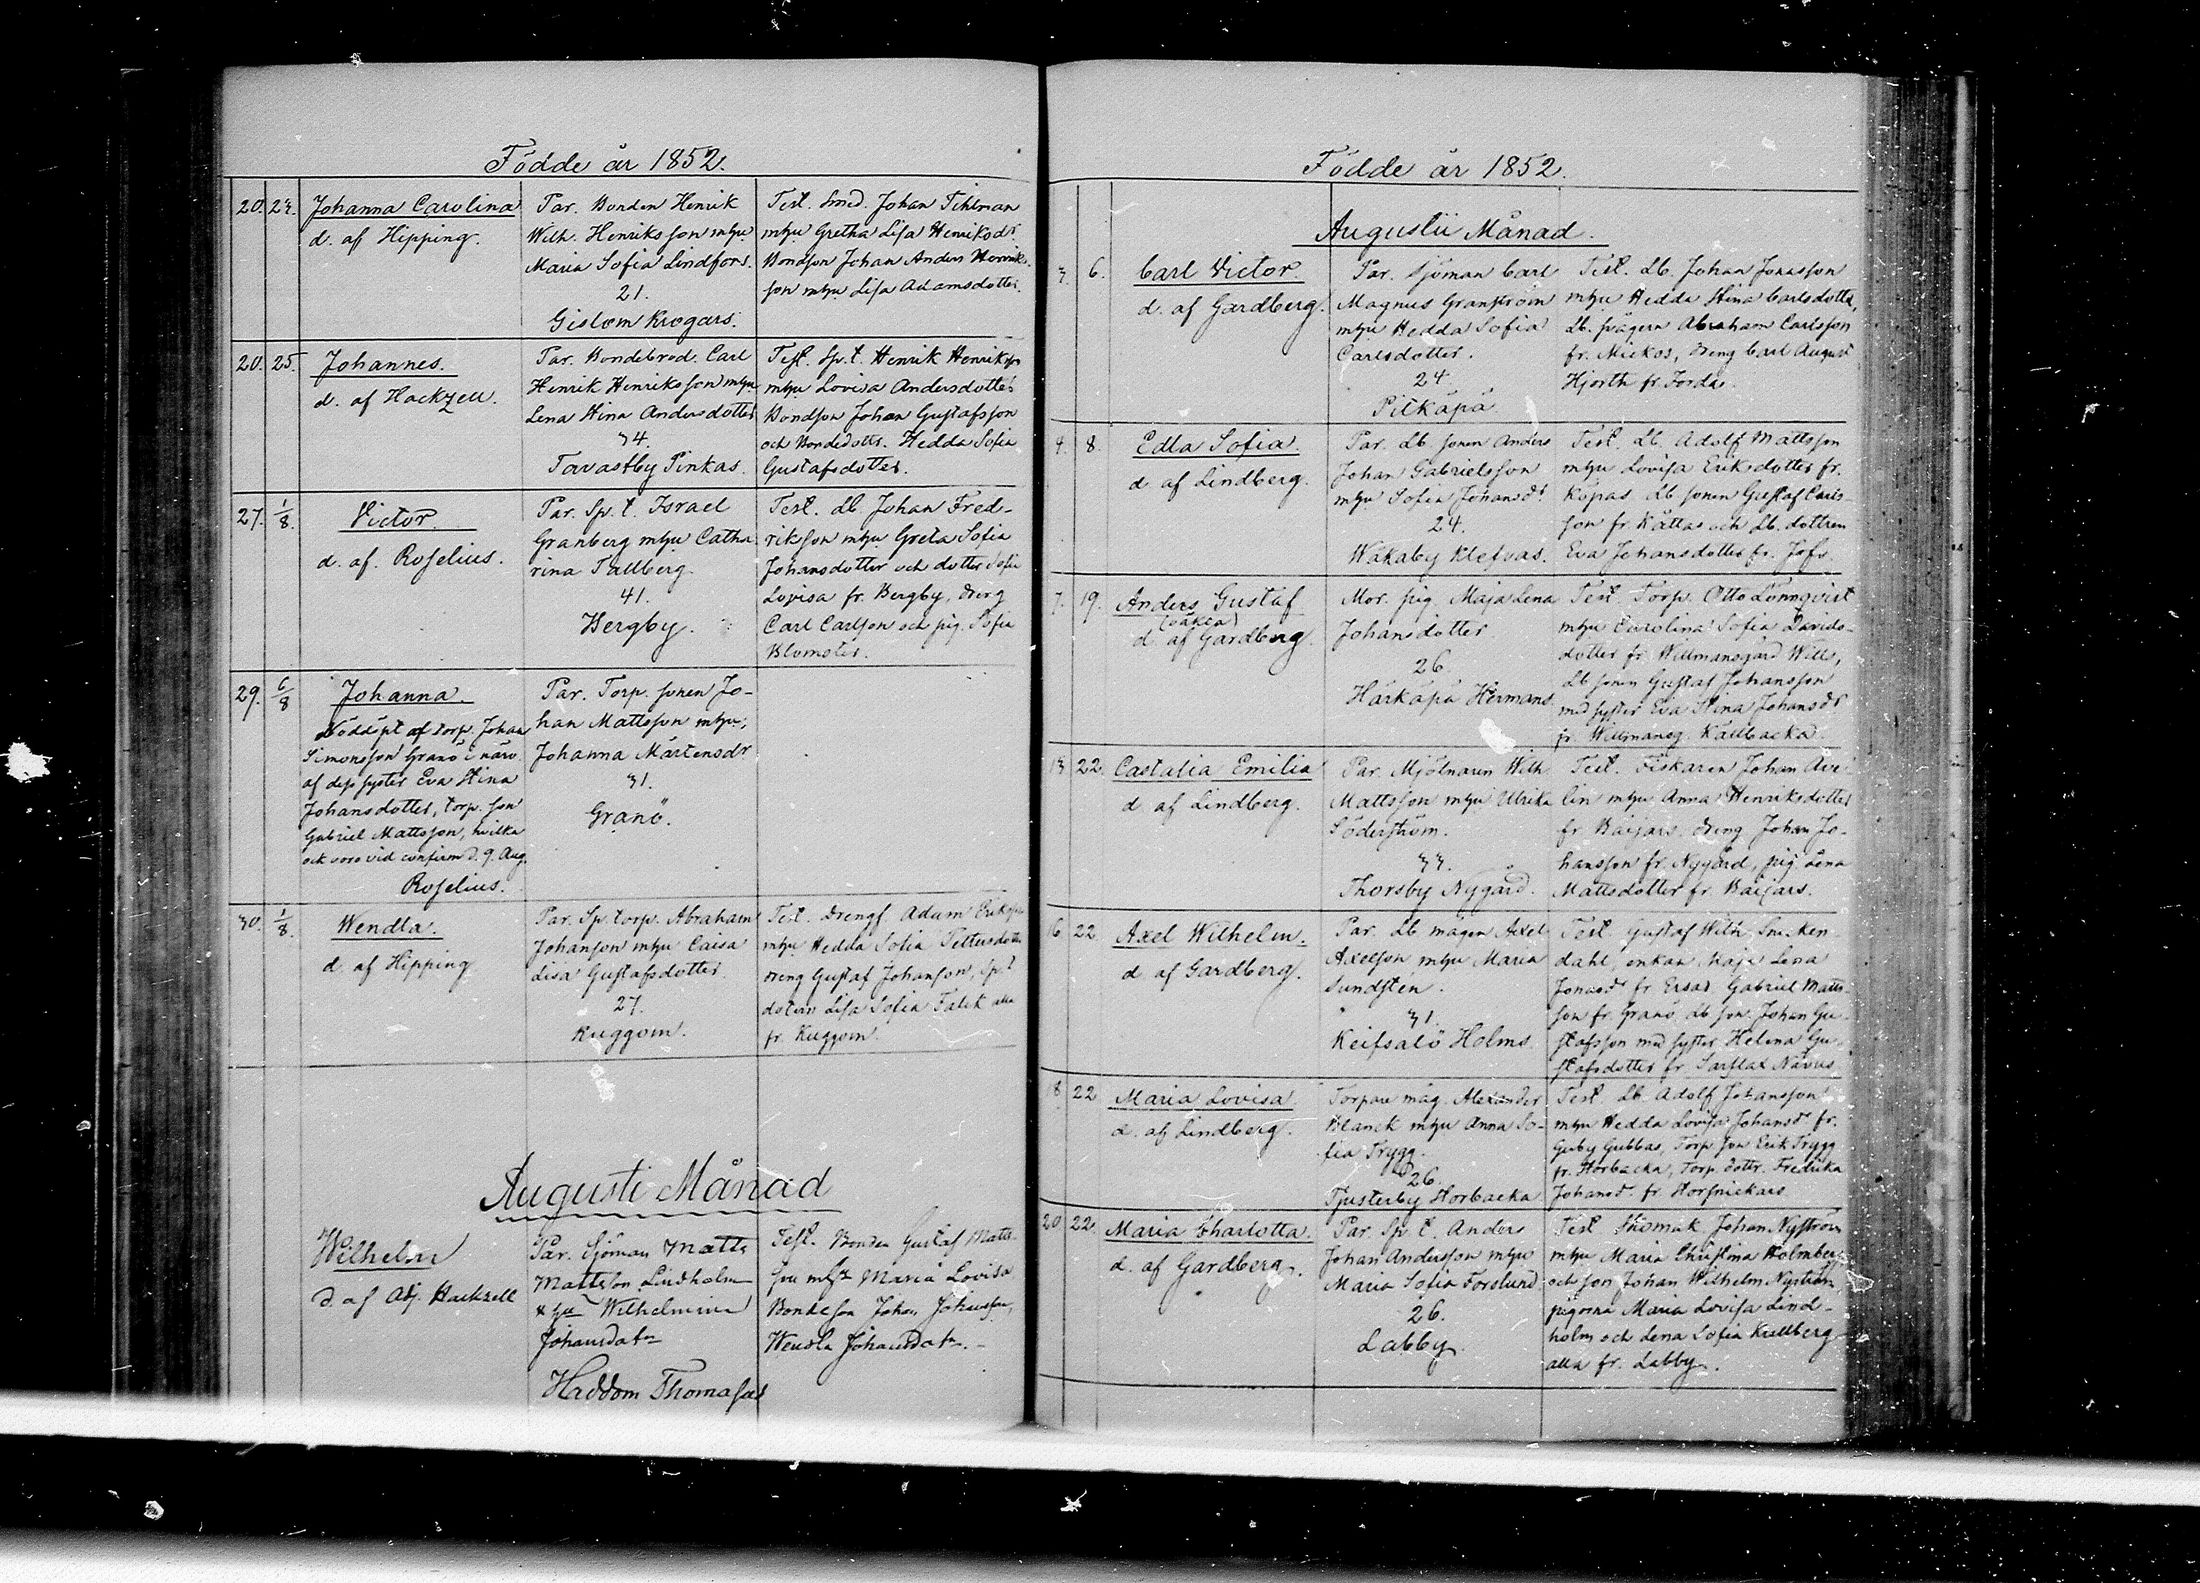 Födde år 1852.
20. 23. Johanna Carolina
d. af Hipping.
Par. Bonden Henrik
Wilh. Henriksson mhu
Maria Sofia Lindfors.
21.
Gislom Krogars.
Test. Smed. Johan Tihlman
mhu Gretha Lisa Henriksdr
Bondson Johan Anders Henriks
son mhu Lisa Adamsdotter.
20. 25. Johannes.
d. af Hackzell.
Par. Bondebrod. Carl
Henrik Henriksson mhu
Lena Stina Andersdotter
34.
Tavastby Pinkas.
Test. Sp. t. Henrik Henriksson
mhu Lovisa Andersdotter
Bondson Johan Gustafsson
och Bondedottr. Hedda Sofia
Gustafsdotter.
27. 1/8. Victor.
d. af. Roselius.
Par. Sp. t. Israel
Granberg mhu Catha
rina Tallberg.
41.
Bergby.
Test. Lb Johan Fred-
riksson mhu Greta Sofia
Johansdotter och dotter Sofia
Lovisa fr. Bergby, dreng
Carl Carlson och pig. Sofia
Blomster.
29. 6/8 Johanna.
Nöddöpt af torp. Johan
Simonsson Granö i närv.
af dess syster Eva Stina
Johansdotter, torp. son
Gabriel Mattsson, hvilka
ock voro vid confirm d. 9. Aug.
Roselius.
Par. Torp. sonen Jo-
han Mattsson mhu,
Johanna Mårtensdr
31.
Granö.
30. 1/8. Wendla.
d. af Hipping
Par. Sp. torp. Abraham
Johanson mhu Caisa
Lisa Gustafsdotter
27.
Kuggom.
Test. Drengs. Adam Eriksson
mhu Hedda Sofia Pettersdotter
dreng Gustaf Johanson, Sp. t
dotern Lisa Sofia Falck alla
fr. Kuggom.
Augusti Månad
Wilhelm
d. af Adj. Hackzell
Par. Sjöman Matts
Mattsson Lindholm
& hu Wilhelmina
Johansdotr
Haddom Thomasas
Test. Bonden Gustaf Matts-
son mhu Maria Lovisa
Bondeson Johan Johansson,
Wendla Johansdotr. -
Födde år 1852.
Augustii Månad.
3. 6. Carl Victor.
d. af Gardberg.
Par. Sjöman Carl
Magnus Granström
mhu Hedda Sofia
Carlsdotter.
24
Pitkäpä
Test. Lb. Johan Jonasson
mhu Hedda Stina Carlsdotter,
Lb. svågern Abraham Carlsson
fr. Mickos, dreng Carl August
Hjorth fr. Forda.
4. 8. Edla Sofia.
d. af Lindberg.
Par. Lb. sonen Anders
Johan Gabrielsson
mhu Sofia Johansdr
24.
Wåkaby Klefvas.
Test. Lb. Adolf Mattsson
mhu Lovisa Eriksdotter fr.
Köpas Lb sonen Gustaf Carls-
son fr. Kåttas och Lb. dottren
Eva Johansdotter fr. Jofs.
7. 19. Anders Gustaf
(oäkta)
d. af Gardberg.
Mor. pig. Maja Lena
Johansdotter
26.
Härkäpä Hermans.
Test Torp. Otto Lönnqvist
mhu Carolina Sofia Davids-
dotter fr. Willmansgård Wills,
Lb sonen Gustaf Johansson
med syster Eva Stina Johansdr
fr. Willmansg. Kållbacka.
13 22. Castalia Emilia
d. af Lindberg.
Par. Mjölnaren Wilh
Mattsson mhu Ulrika
Söderström.
33.
Thorsby Nygård.
Test. Fiskaren Johan Ave
lin mhu Anna Henriksdotter
fr. Baijars. dreng Johan Jo-
hansson fr. Nygård, pig. Lena
Mattsdotter fr. Baijars.
16 22 Axel Wilhelm.
d. af Gardberg.
Par. Lb mågen Axel
Axelson mhu Maria
Sundstén.
31.
Keifsalö Holms
Test. Gustaf Wilh. Snicken
dahl, enkan Maja Lena
Jonasdr fr. Ersas Gabriel Matts-
son fr. Granö Lb son. Johan Gu-
stafsson med syster Helena Gu-
stafsdotter fr. Sarflax Nävus
8 22 Maria Lovisa
d. af Lindberg.
Torpare måg. Alexander
Blanck mhu Anna So-
fia Trygg.
26.
Tjusterby Horbacka
Test. Lb. Adolf Johansson
mhu Hedda Lovisa Johansdr fr.
Gäby Gubbas, Torp. son Erik Trygg
fr. Horbacka, Torp. dottr. Fredrika
Johansdr fr. Horsnickars
20 22. Maria Charlotta.
d. af Gardberg.
Par. Sp. t. Anders
Johan Andersson mhu
Maria Sofia Forslund.
26.
Labby.
Test Skomak Johan Nyström
mhu Maria Christina Holmberg
och son Johan Wilhelm Nyström,
pigorna Maria Lovisa Lind-
holm och Lena Sofia Kullberg
alla fr. Labby.